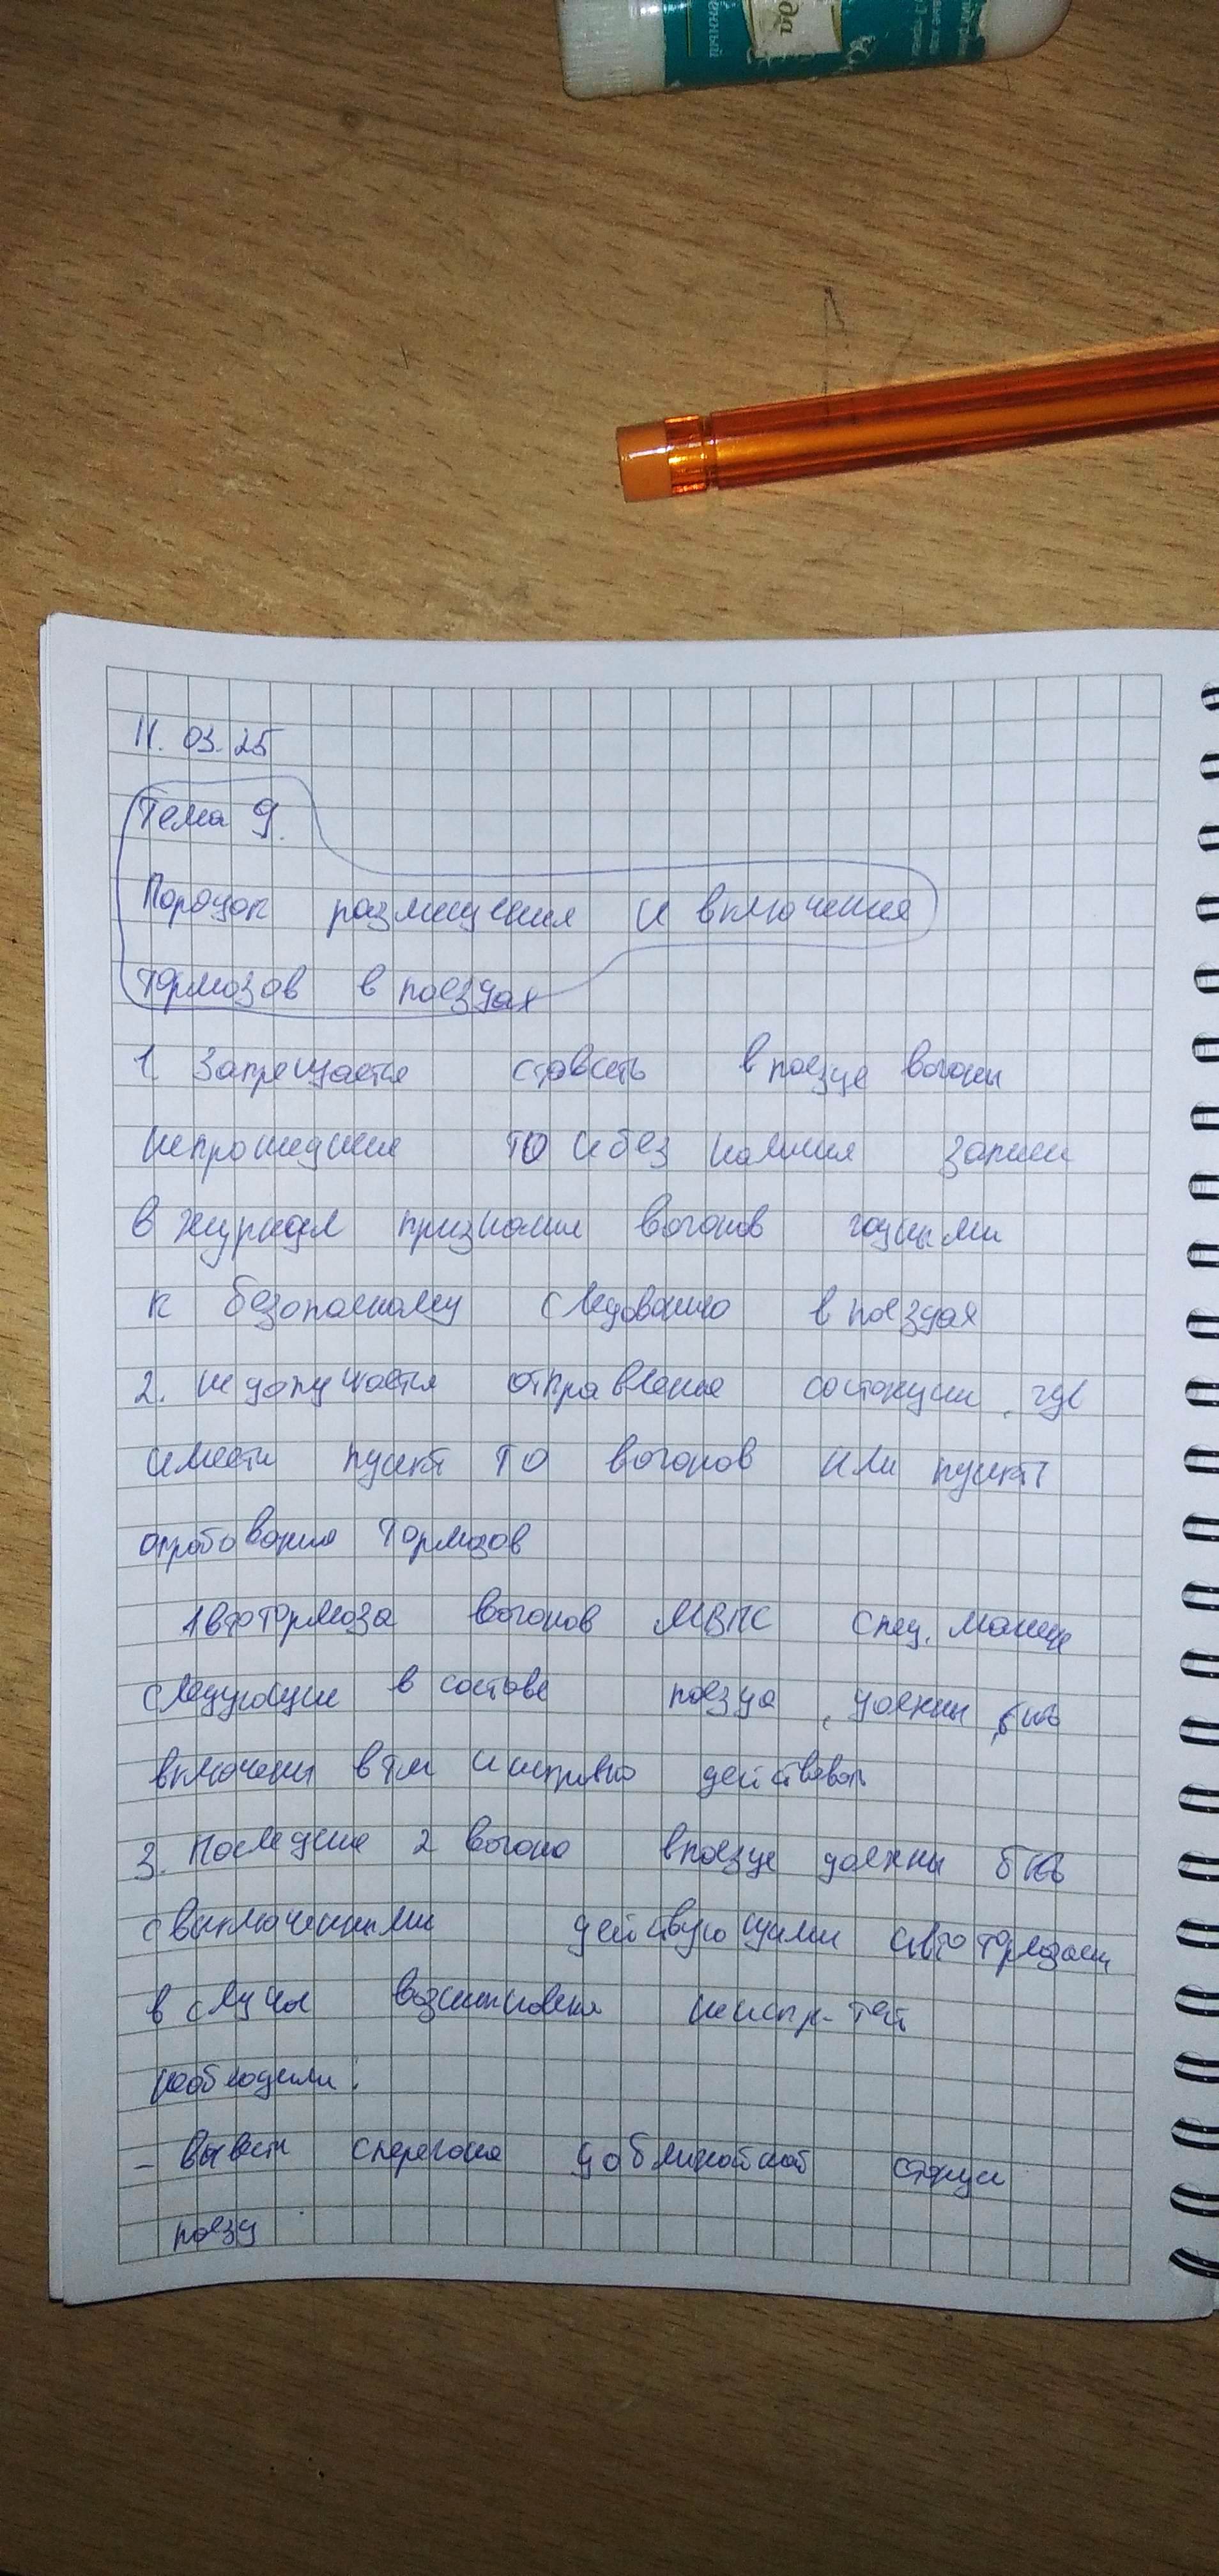 11.03.25
Тема 9.
Порядок размещения и включения
тормозов в поездах
1. Запрещается ставить в поезде вагоны
непрошедшие ТО и без наличия записи
в журнал признания вагонов годными
к безопасному следованию в поездах
2. не допущается отправление состанции, где
имеети пункт ТО вагонов или пункт
опробования тормозов
Автотормоза вагонов МВПС спец. машин
следующие в составе поезда, должны быть
включены в ТМ и исправно действовать
3. Последние 2 вагона в поезде должны быть
с включенными действующими автотормозами
в случае возникновения неиспр-тей
необходимы:
- вывести с перегона до ближайшей станции
поезд